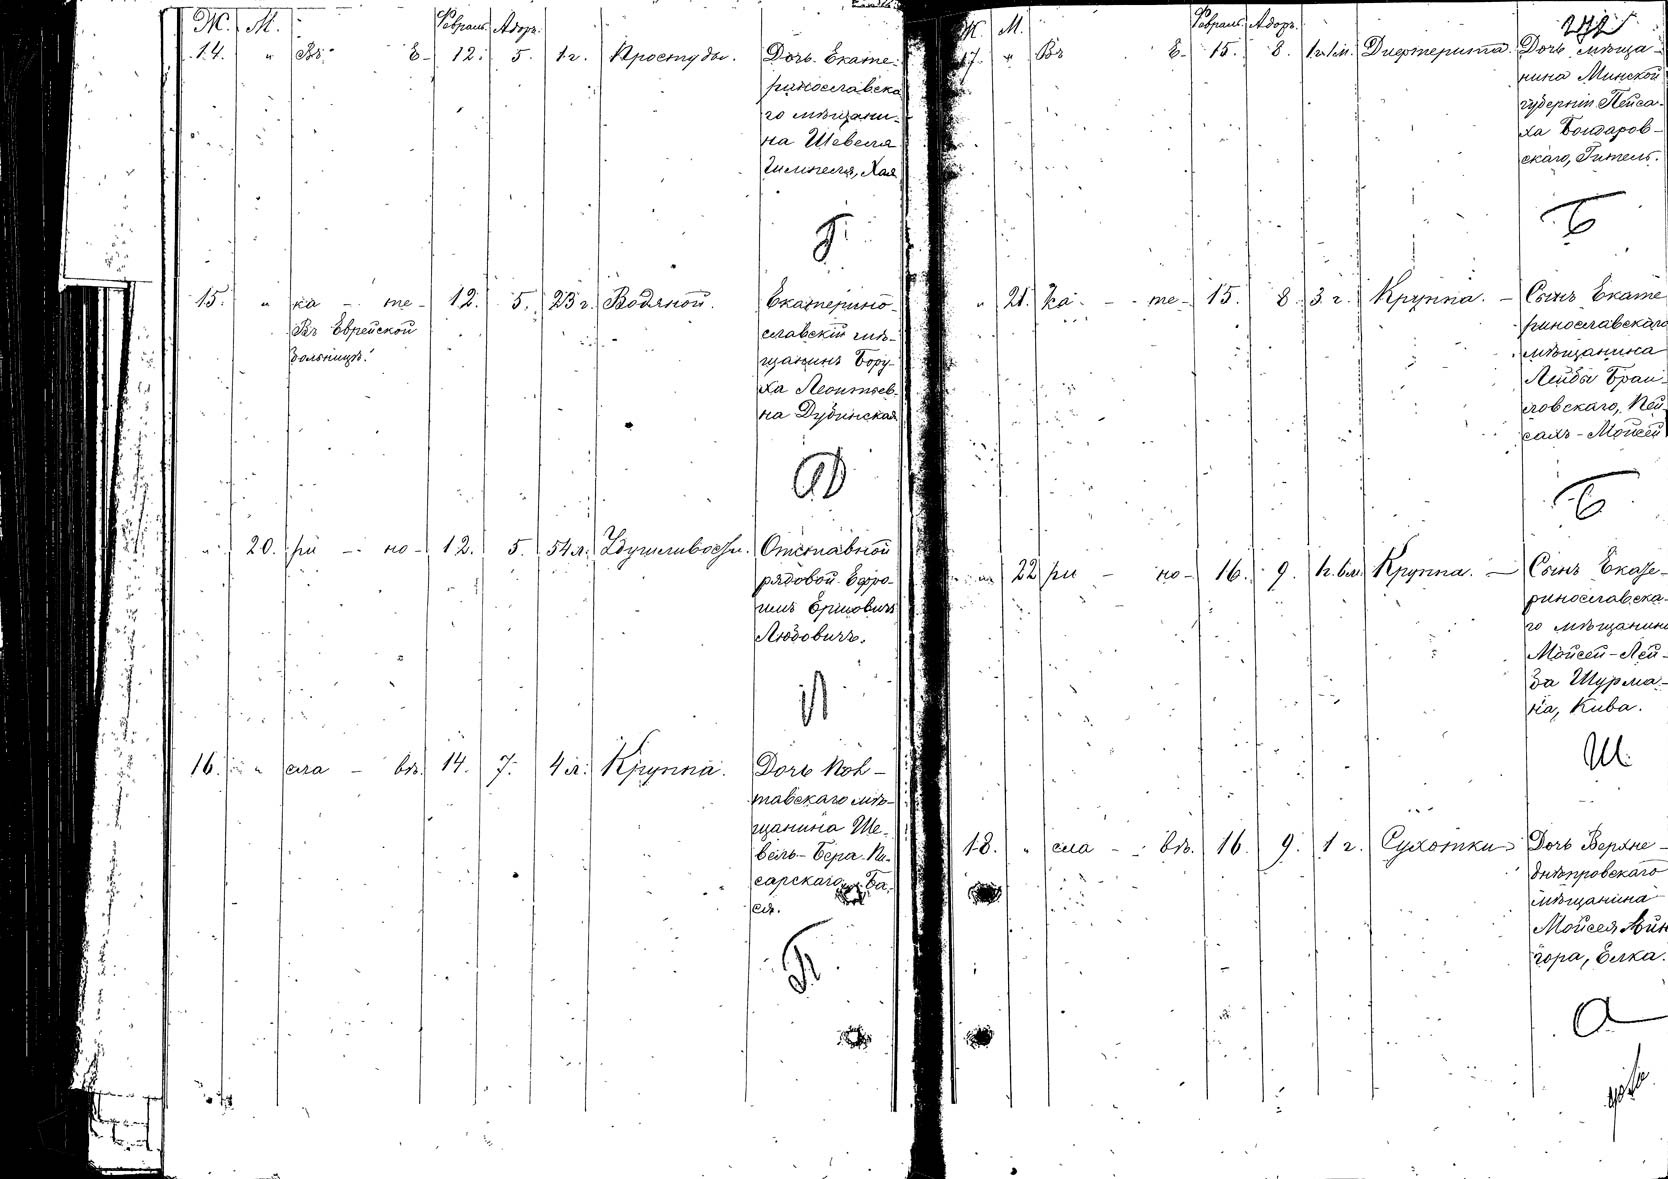 Ж. М. Февраль. Адоръ.
14. " Въ Е- 12. 5. 1 г. Простуды. Дочь Екате-
ринославска
го мѣщани-
на Шевеля
Гимпеля, Хая
Г
15. " ка - те- 12. 5. 23 г. Водяной. Екатерино-
Въ Еврейской славскій мѣ-
больницѣ. щанинъ Бору-
ха Леонтьев-
на Дубинская
Д
" 20. ри - но- 12. 5. 54 л. Удушливости. Отставной
рядовой Ефро-
имъ Ершовичъ
Любовичъ.
Л
16. " сла - вѣ. 14. 7. 4 л. Круппа. Дочь Пол-
тавскаго мѣ-
щанина Ше-
вель-Бера Пи-
сарскаго, Ба-
ся.
П
Ж. М. Февраль. Адоръ.
17. " Въ Е- 15. 8. 1 г. 1 м. Дифтерита. Дочь мѣща-
нина Минской
губерніи Пейса-
ха Бондаров-
скаго, Гитель.
Б
" 21. ка - те- 15. 8. 3 г. Круппа. Сынъ Екате
ринославскаго
мѣщанина
Лейбы Браи-
ловскаго, Пей-
сахъ-Мойсей
Б
" 22 ри - но- 16. 9. 1 г. 6 м. Круппа. Сынъ Екате-
ринославска-
го мѣщанина
Мойсей-Лей-
ба Шурма-
на, Кива.
Ш
18. " сла - вѣ. 16. 9. 1 г. Сухотки Дочь Верхне-
днѣпровскаго
мѣщанина
Мойсея Айн
гора, Елка.
А